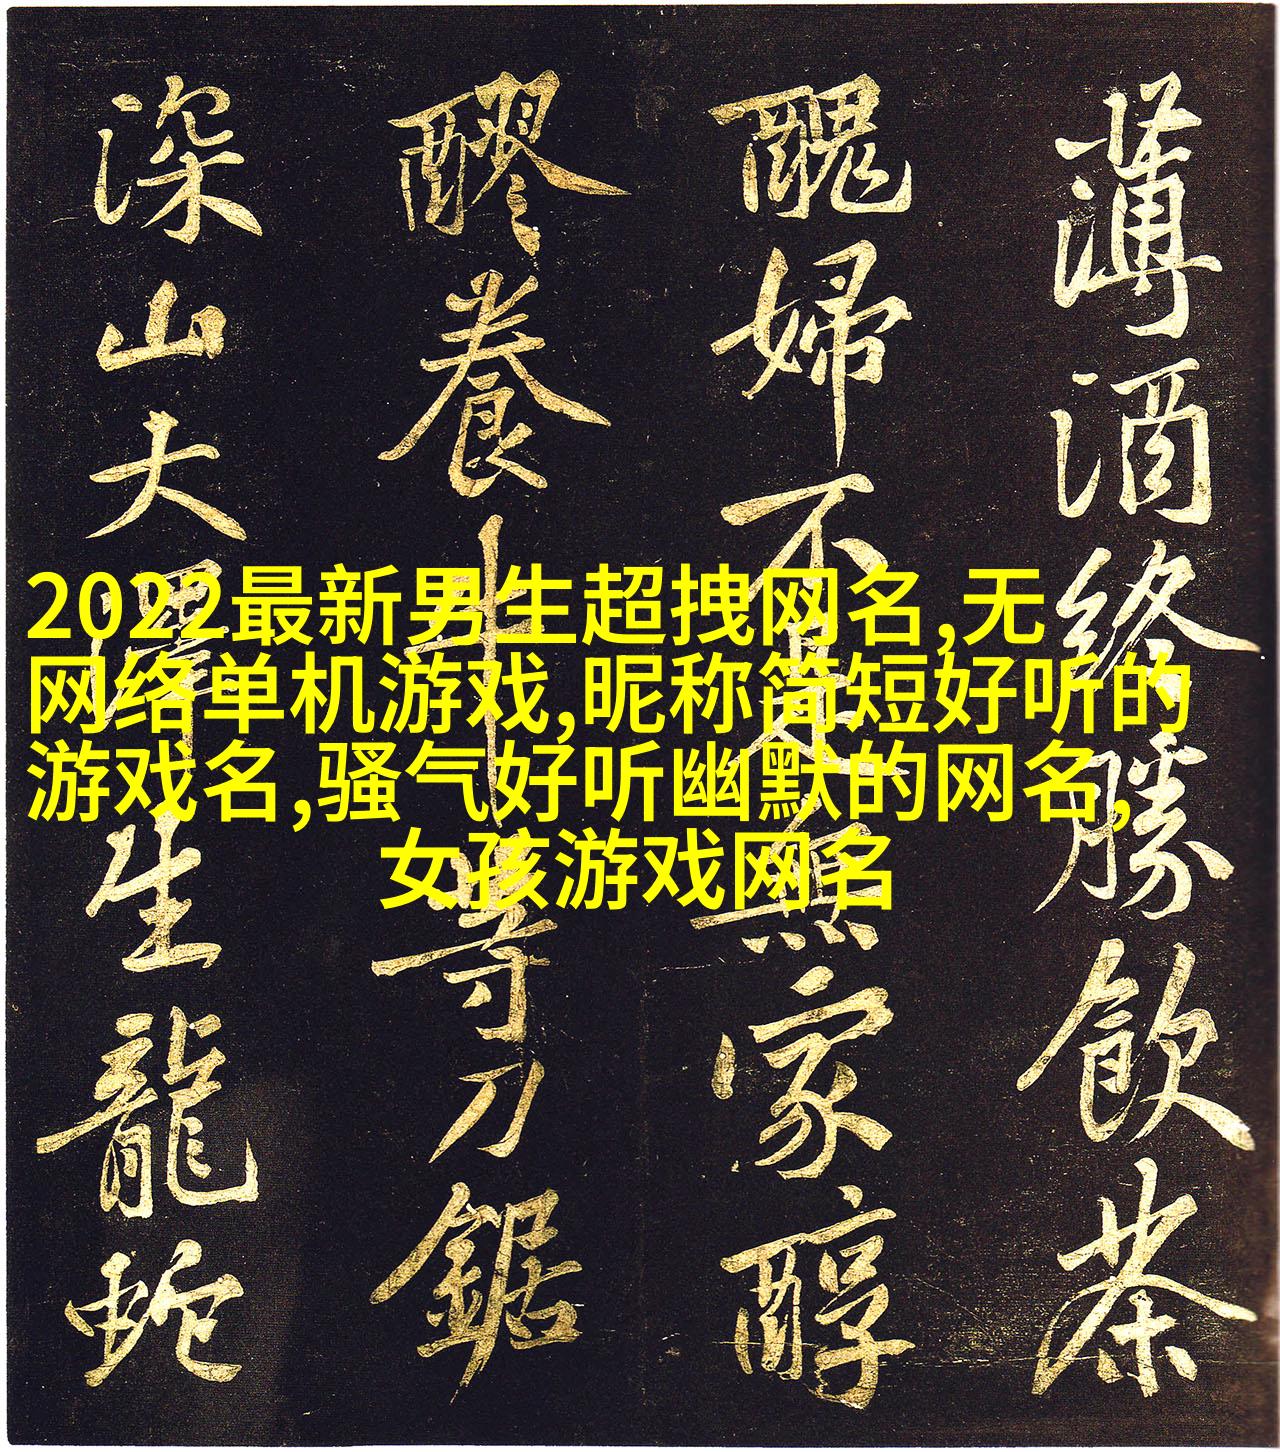 薄酒終勝飲茶
醜婦不是無家醇
醪養牛等刀鋸
深山大澤生龍蛇
2022最新男生超拽网名,无
网络单机游戏,昵称简短好听的
游戏名,骚气好听幽默的网名,
女孩游戏网名